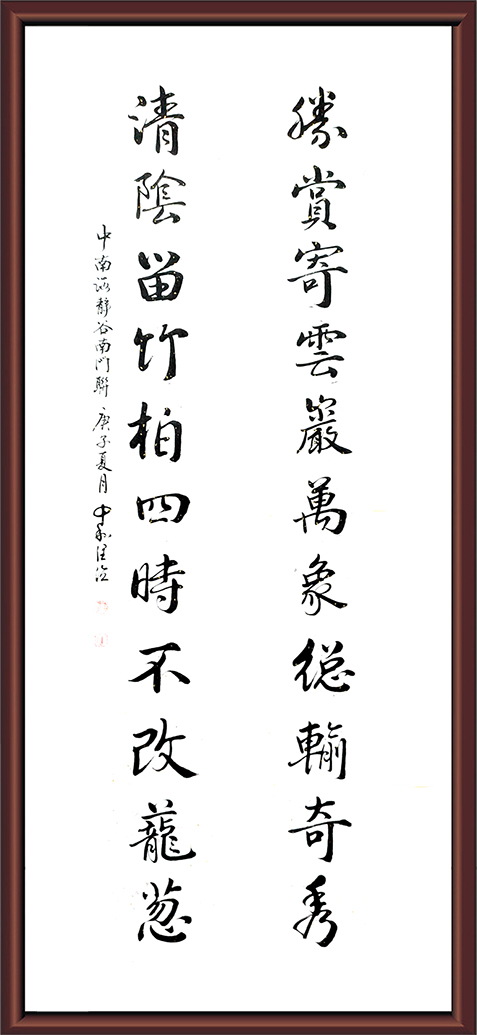 勝賞寄雲巖萬象總輸奇秀
清陰留竹柏四時不改蘢蔥
中南海靜谷南門聯 庚子夏月